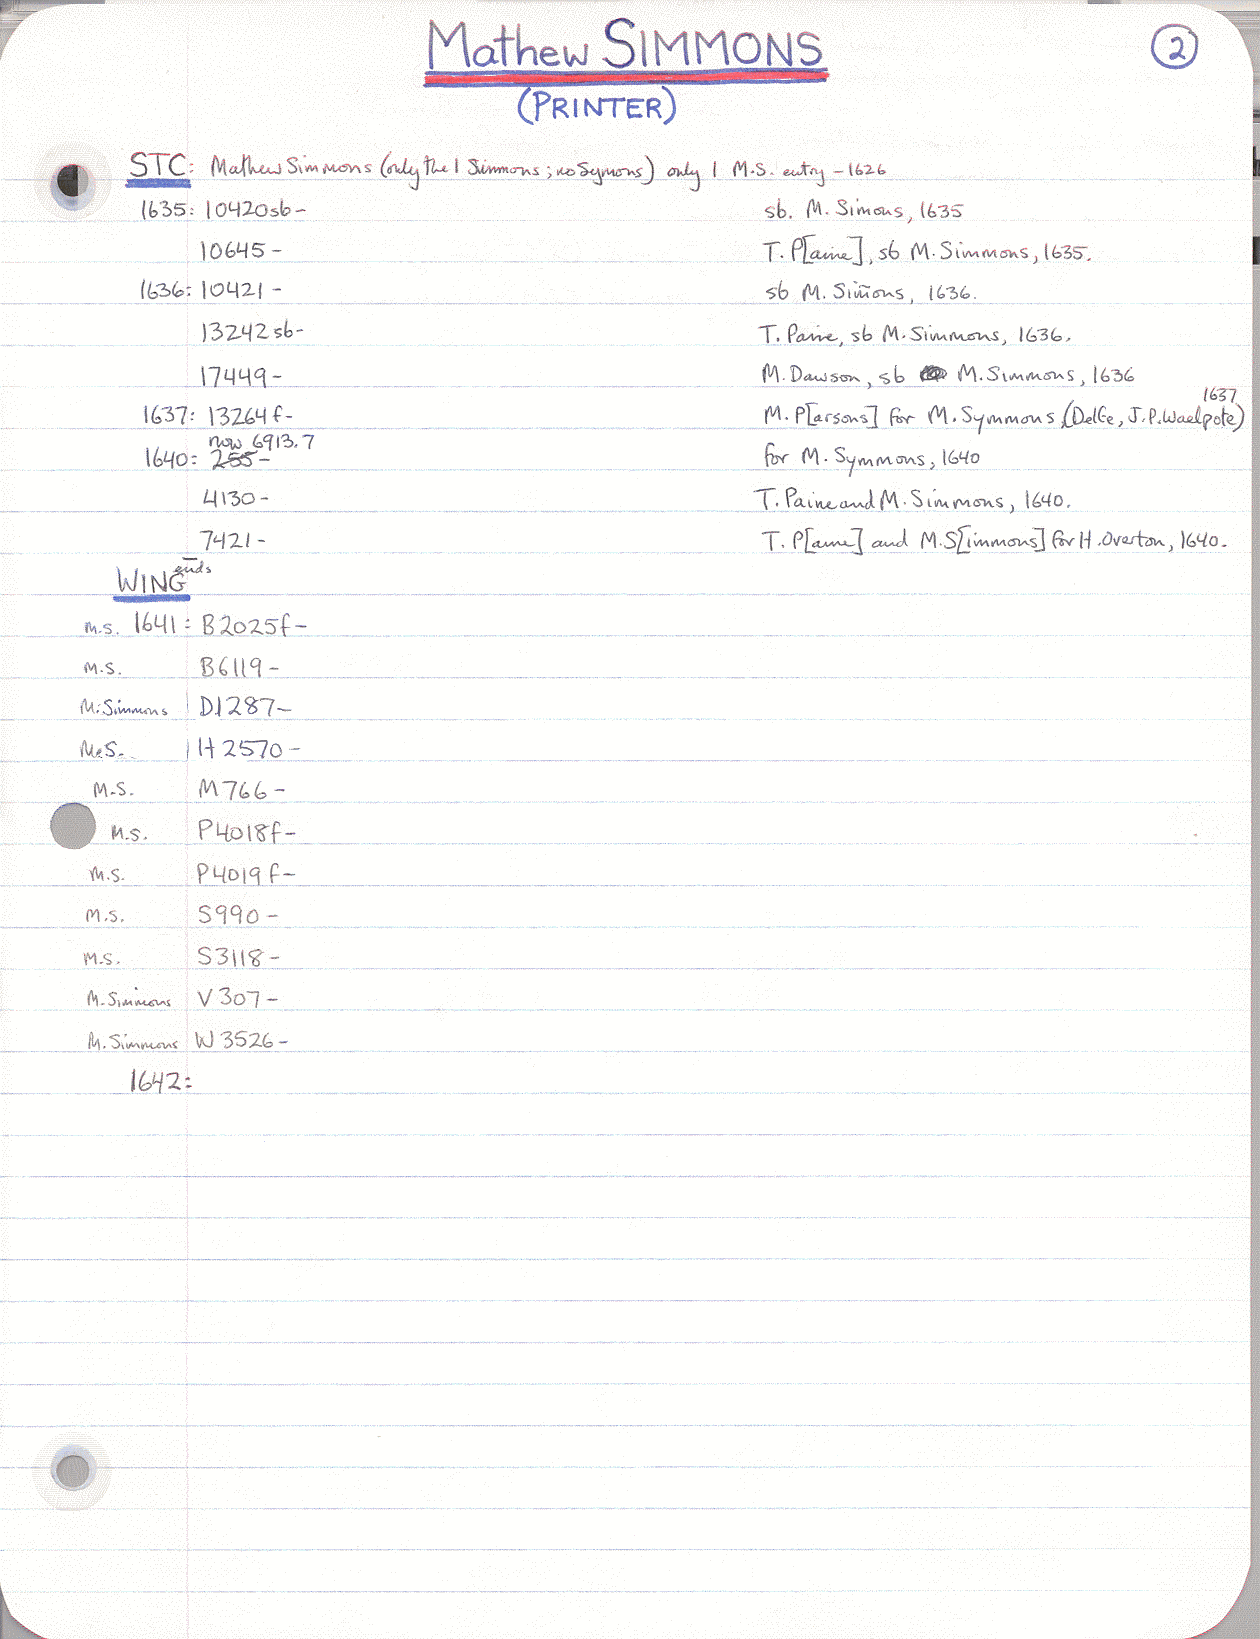 Mathew SIMMONS
2
(PRINTER)
STC: Mathew Simmons (only the 1 Simmons; no Symons) only 1 M.S. entry - 1626
1635: 10420sb- sb. M. Simons, 1635
10645 - T. P[aine], sb M. Simmons, 1635.
1636: 10421 - sb M. Simõns, 1636.
13242 sb- T. Paine, sb M. Simmons, 1636.
17449 - M. Dawson, sb M. Simmons, 1636
1637
1637: 13264 f- M. P[arsons] for M. Symmons, (Delfe, J.P. Waelpote)
now 6913.7
1640: 255 - for M. Symmons, 1640
4130 - T. Paine and M. Simmons, 1640.
7421 - T. P[aine] and M. S[immons] for H. Overton, 1640.
ends
WING
M.S. 1641: B2025f-
M.S. B6119 -
M. Simmons D1287-
M.S. H2570 -
M.S. M766 -
M.S. P4018f-
M.S. P4019f-
M.S. S990 -
M.S. S3118 -
M. Simmons V307 -
M. Simmons W3526 -
1642: